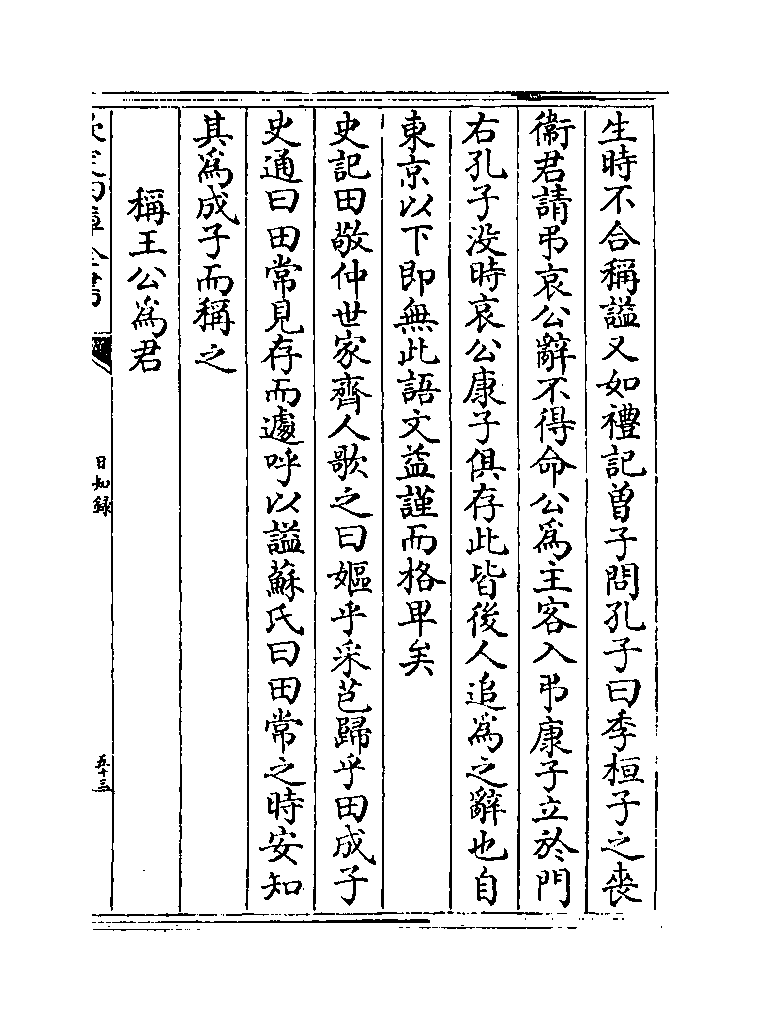 生時不合稱謚又如禮記曾子問孔子曰季桓子之喪
衛君請弔哀公辭不得命公為主客入弔康子立於門
右孔子没時哀公康子俱存此皆後人追為之辭也自
東京以下即無此語文益謹而格卑矣
史記田敬仲世家齊人歌之曰嫗乎采芑歸乎田成子
史通曰田常見存而遽呼以謚蘇氏曰田常之時安知
其為成子而稱之
稱王公為君
日知録
五十三